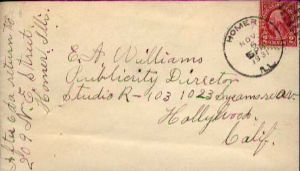 After 6 da. return to
209 N. E. Street
Homer, Ills.
HOMER
NOV
ILL.
E. A. Williams
Publicity Director
Studio R-103 1023
Hollywood.
Calif.